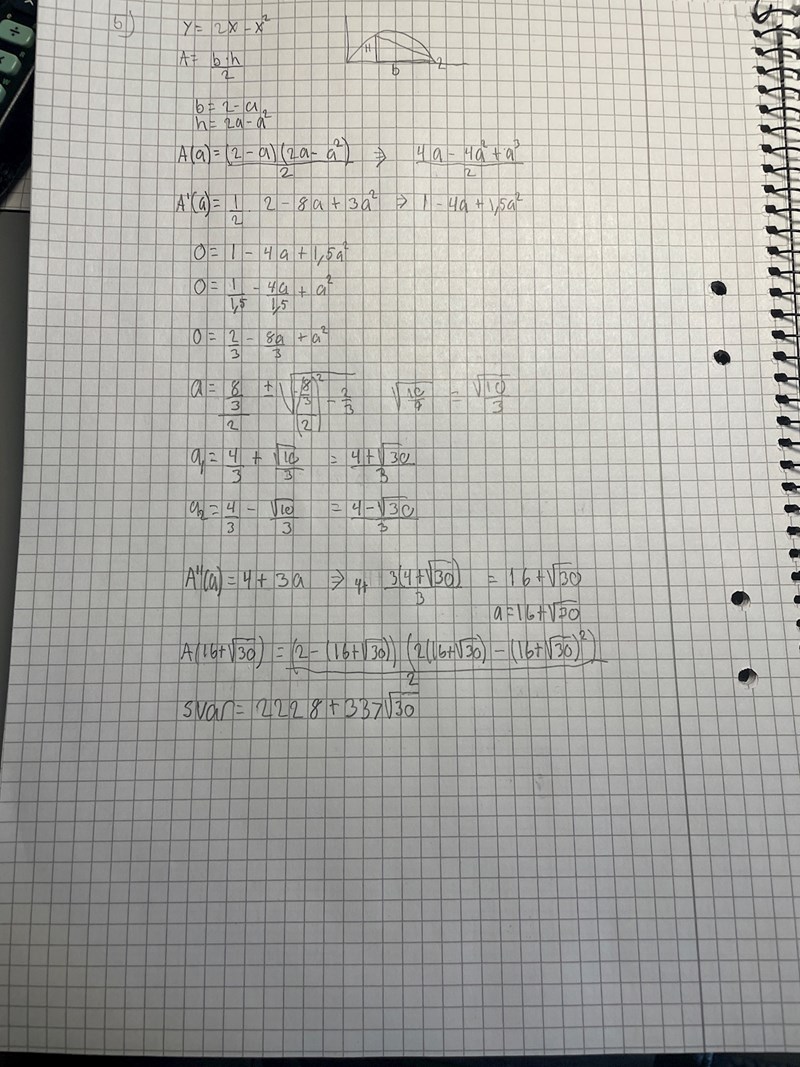 6)
y = 2x - x²
A = b·h/2
H
b
2
b = 2 - a
h = 2a - a²
A(a) = (2 - a)(2a - a²)/2 ⇒ (4a - 4a² + a³)/2
A'(a) = 1/2 · 2 - 8a + 3a² ⇒ 1 - 4a + 1,5a²
0 = 1 - 4a + 1,5a²
0 = 1/1,5 - 4a/1,5 + a²
0 = 2/3 - 8a/3 + a²
a = (8/3)/2 ± √(((8/3)/2)² - 2/3) √(10/9) = √10/3
a₁ = 4/3 + √10/3 = (4 + √30)/3
a₂ = 4/3 - √10/3 = (4 - √30)/3
A''(a) = 4 + 3a ⇒ 4 + 3(4 + √30)/3 = 16 + √30
a = 16 + √30
A(16 + √30) = (2 - (16 + √30)) (2(16 + √30) - (16 + √30)²)/2
svar = 2228 + 337√30